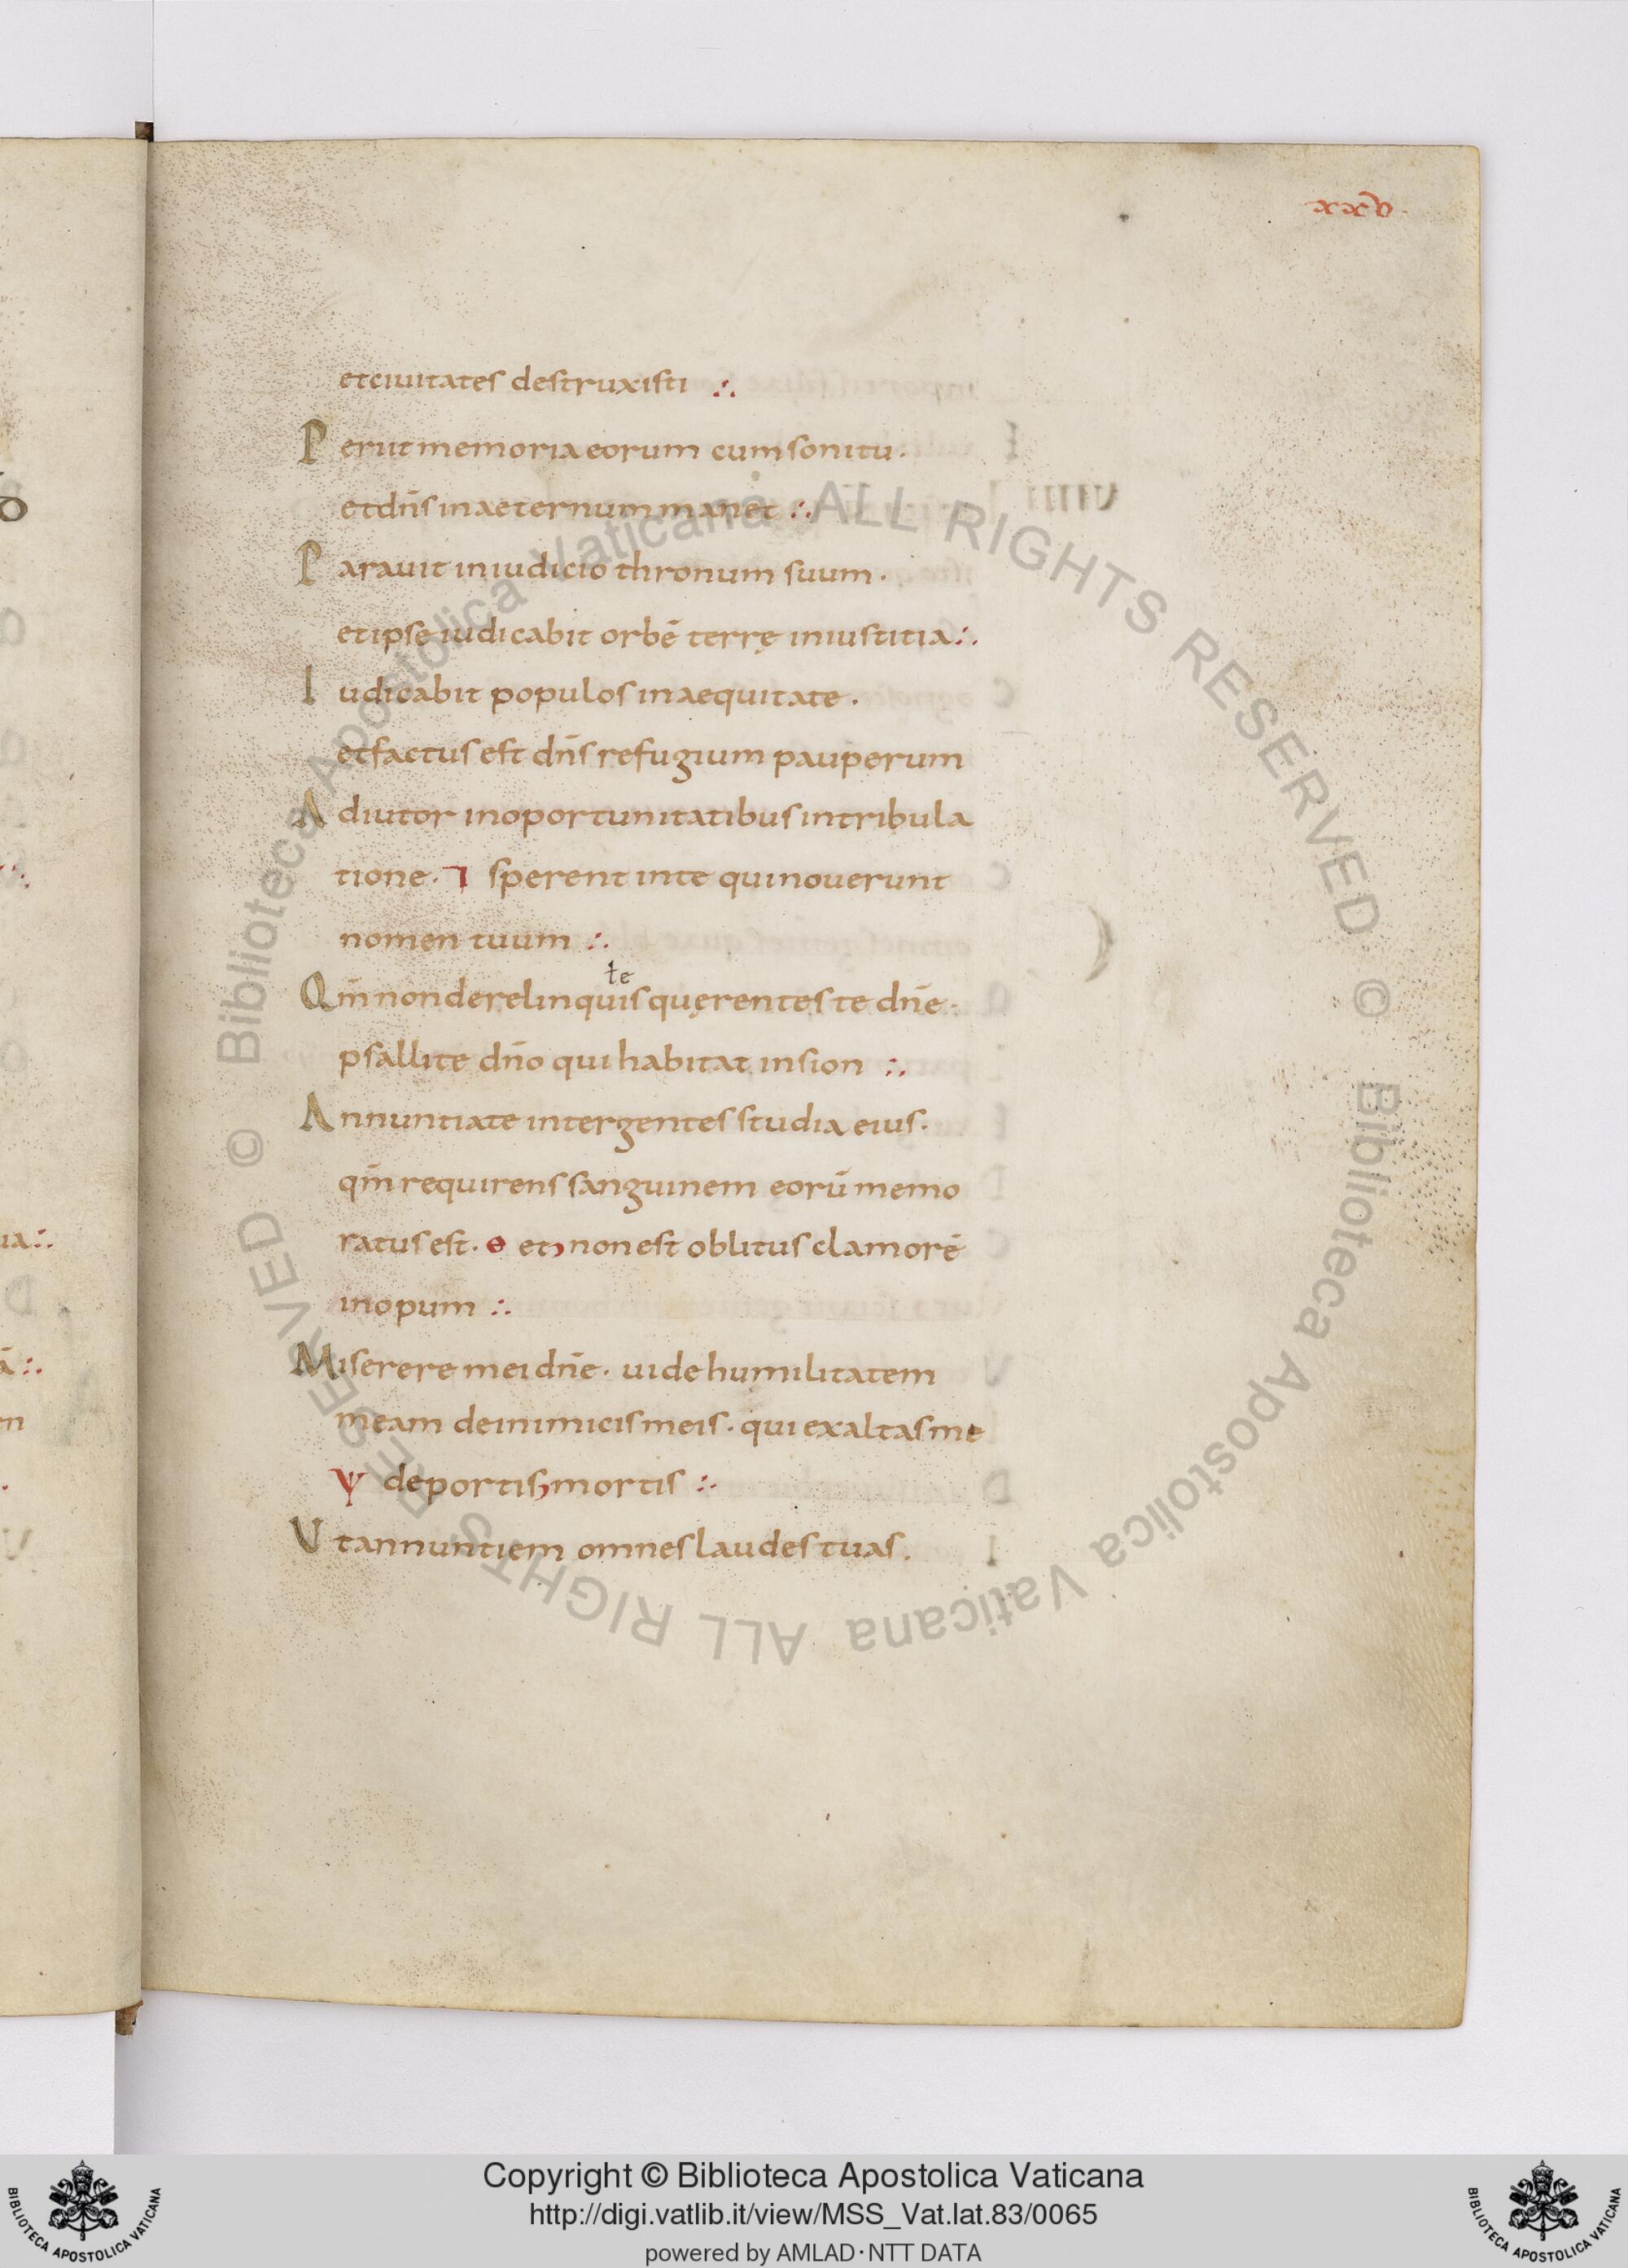 xxv.
etciuitates destruxisti ∴
Periit memoria eorum cum sonitu.
et dñs in aeternum manet ∴
Parauit in iudicio thronum suum.
et ipse iudicabit orbē terrę in iustitia ∴
Iudicabit populos in aequitate.
et factus est dñs refugium pauperum
Adiutor in oportunitatibus in tribula
tione. ⁊ sperent in te qui nouerunt
nomen tuum ∴
te
Qm̄ non derelinquis quęrentes te dñe.
psallite dño qui habitat in sion ∴
Annuntiate inter gentes studia eius.
qm̄ requirens sanguinem eorū memo
ratus est. et non est oblitus clamorē
inopum ∴
Miserere mei dñe. uide humilitatem
meam de inimicis meis. qui exaltas me
ψ de portis mortis ∴
Ut annuntiem omnes laudes tuas.
© Biblioteca Apostolica Vaticana ALL RIGHTS RESERVED © Biblioteca Apostolica Vaticana ALL RIGHTS RESERVED
Copyright © Biblioteca Apostolica Vaticana
http://digi.vatlib.it/view/MSS_Vat.lat.83/0065
powered by AMLAD·NTT DATA
BIBLIOTECA APOSTOLICA VATICANA
BIBLIOTECA APOSTOLICA VATICANA